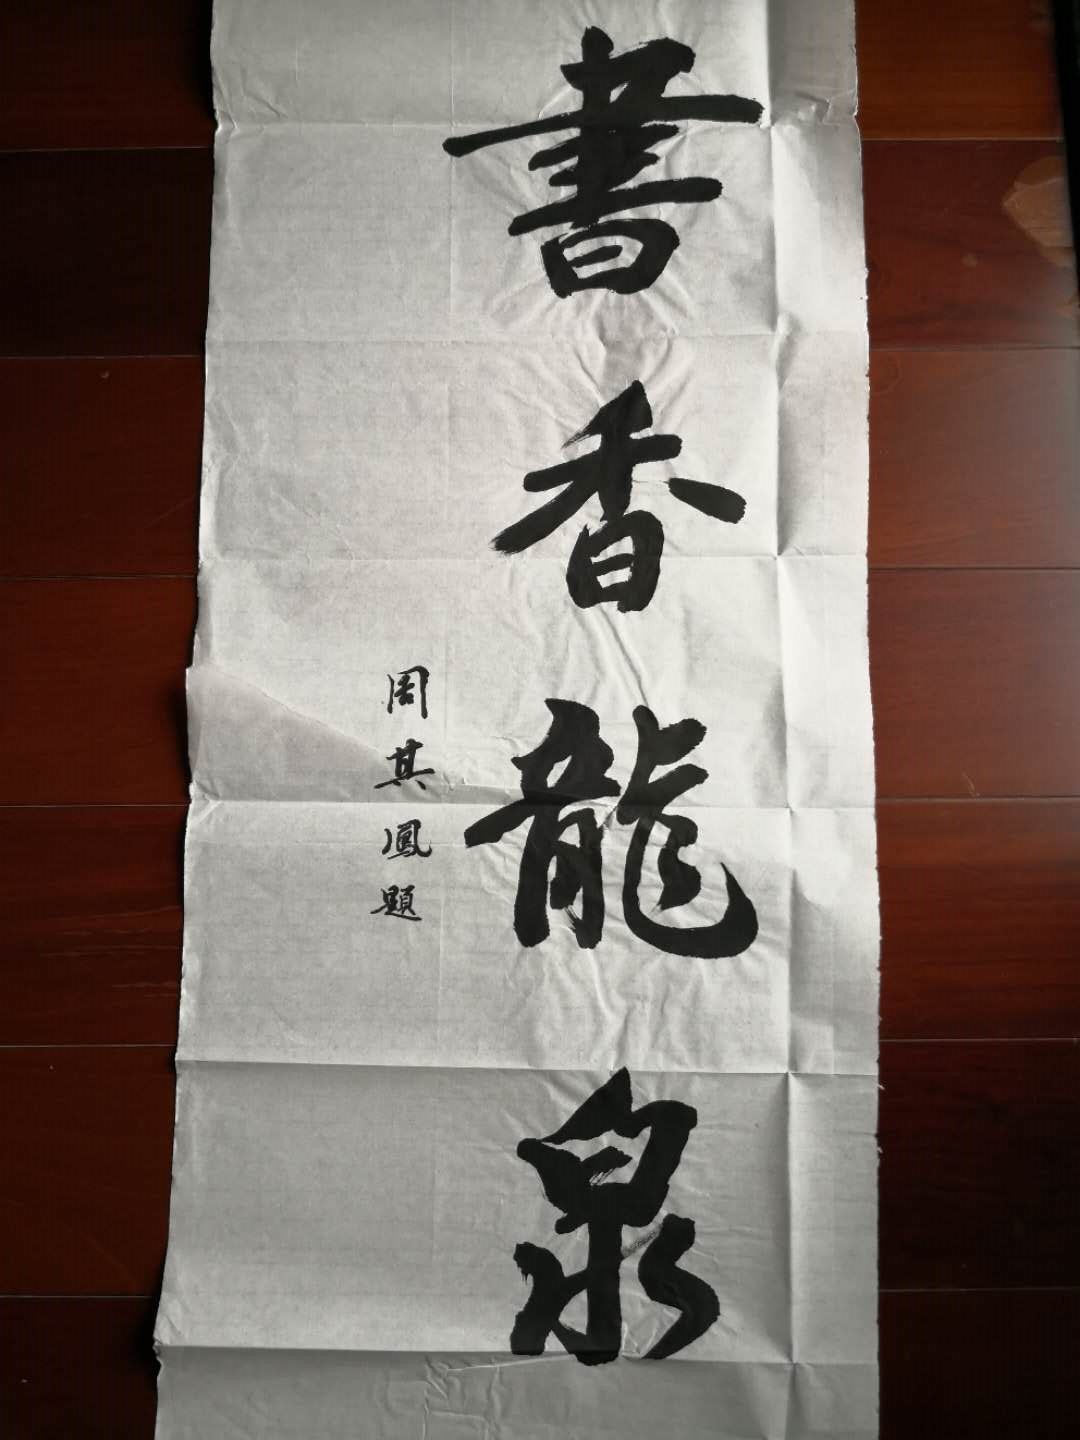 書香龍泉
周其鳳題